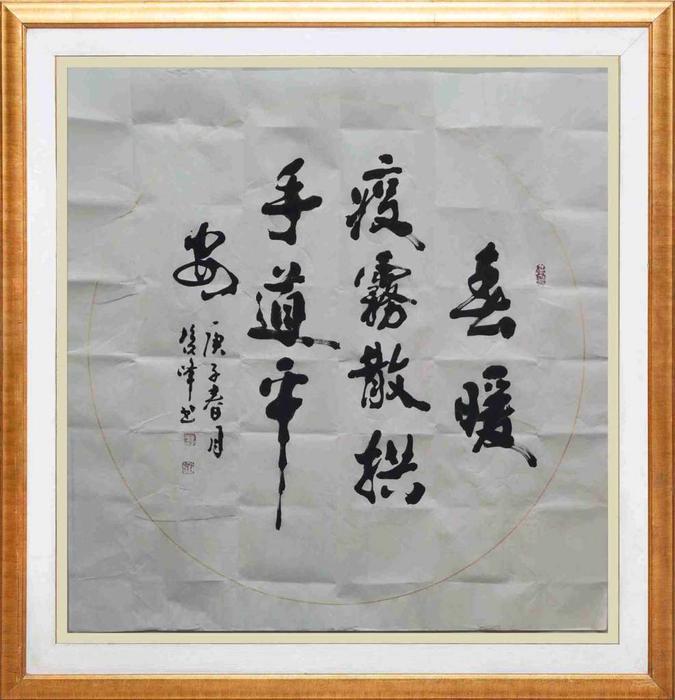 春暖
疫霧散拱
手道平
安
庚子春月
俊峰书